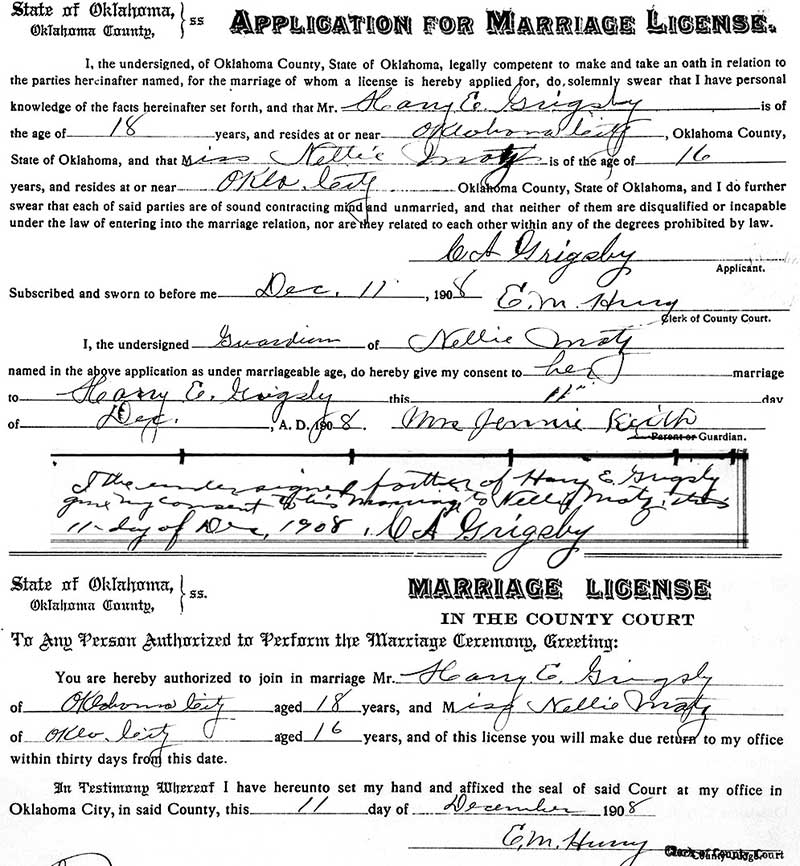 State of Oklahoma,
Oklahoma County, } ss
APPLICATION FOR MARRIAGE LICENSE.
I, the undersigned, of Oklahoma County, State of Oklahoma, legally competent to make and take an oath in relation to
the parties hereinafter named, for the marriage of whom a license is hereby applied for, do solemnly swear that I have personal
knowledge of the facts hereinafter set forth, and that Mr. Harry E. Grigsby is of
the age of 18 years, and resides at or near Oklahoma City, Oklahoma County,
State of Oklahoma, and that Miss Nellie Motz is of the age of 16
years, and resides at or near Okla City Oklahoma County, State of Oklahoma, and I do further
swear that each of said parties are of sound contracting mind and unmarried, and that neither of them are disqualified or incapable
under the law of entering into the marriage relation, nor are they related to each other within any of the degrees prohibited by law.
C A Grigsby
Applicant.
Subscribed and sworn to before me Dec. 11, 1908 E. M. Hurry
Clerk of County Court.
I, the undersigned Guardian of Nellie Motz
named in the above application as under marriageable age, do hereby give my consent to her marriage
to Harry E. Grigsby this 11" day
of Dec., A. D. 1908. Mrs Jennie Keith
Parent or Guardian.
I the undersigned father of Harry E Grigsby
give my consent to his marriage to Nellie Motz, this
11 day of Dec, 1908. C A Grigsby
State of Oklahoma,
Oklahoma County, } ss.
MARRIAGE LICENSE
IN THE COUNTY COURT
To Any Person Authorized to Perform the Marriage Ceremony, Greeting:
You are hereby authorized to join in marriage Mr. Harry E. Grigsby
of Oklahoma City aged 18 years, and Miss Nellie Motz
of Okla City aged 16 years, and of this license you will make due return to my office
within thirty days from this date.
In Testimony Whereof I have hereunto set my hand and affixed the seal of said Court at my office in
Oklahoma City, in said County, this 11 day of December 1908
E. M. Hurry
Clerk of County Court